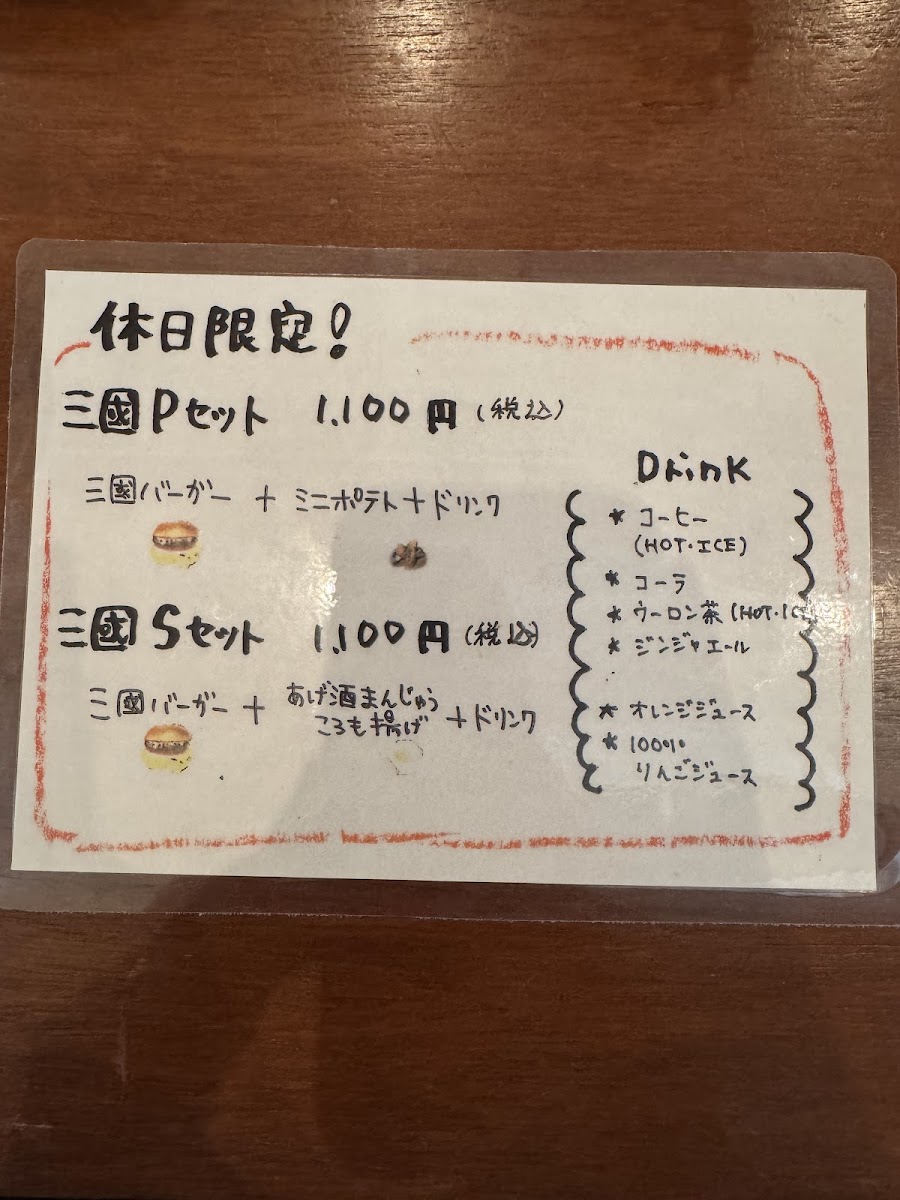 休日限定!
三國Pセット 1,100円(税込)
三國バーガー + ミニポテト + ドリンク
三國Sセット 1,100円(税込)
三國バーガー + あげ酒まんじゅう
ころも揚げ + ドリンク
Drink
* コーヒー
(HOT・ICE)
* コーラ
* ウーロン茶(HOT・ICE)
* ジンジャエール
* オレンジジュース
* 100%
りんごジュース